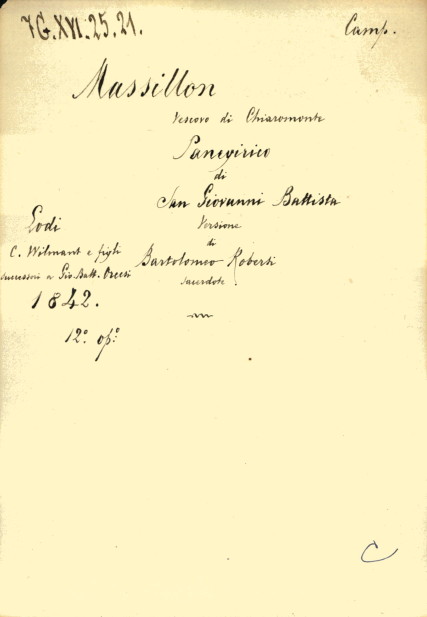 7G.XVI.25.21.
Camp.
Massillon
Vescovo di Chiaromonte
Panegirico
di
San Giovanni Battista
Versione
di
Bartolomeo Roberti
sacerdote
Lodi
C. Wilmant e figli
successori a Gio. Batt. Orcesi
1842.
12º. opº:
C